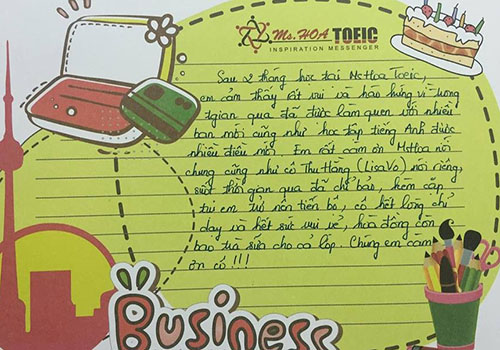 Ms.HOA TOEIC
INSPIRATION MESSENGER
Sau 2 tháng học tại MsHoa Toeic,
em cảm thấy rất vui và hào hứng vì trong
tgian qua đã được làm quen với nhiều
bạn mới cũng như học tập tiếng Anh được
nhiều điều mới. Em rất cảm ơn MsHoa nói
chung cũng như cô Thu Hằng (LisaVo) nói riêng,
suốt thời gian qua đã chỉ bảo, kèm cặp
tụi em từ nền tiến bộ, cô hết lòng chỉ
dạy và hết sức vui vẻ, hòa đồng còn
bao trà sữa cho cả lớp. Chúng em cảm
ơn cô !!!
Business